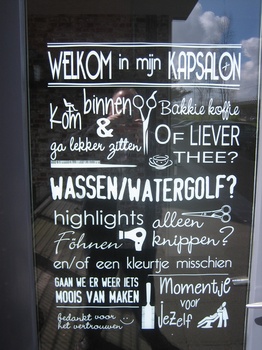 WELKOM in mijn KAPSALON
Kom binnen
&
ga lekker zitten
Bakkie koffie
OF LIEVER
THEE?
WASSEN/WATERGOLF?
highlights alleen
Föhnen knippen?
en/of een kleurtje misschien
GAAN WE ER WEER IETS
MOOIS VAN MAKEN
bedankt voor
het vertrouwen
Momentje
voor
jezelf